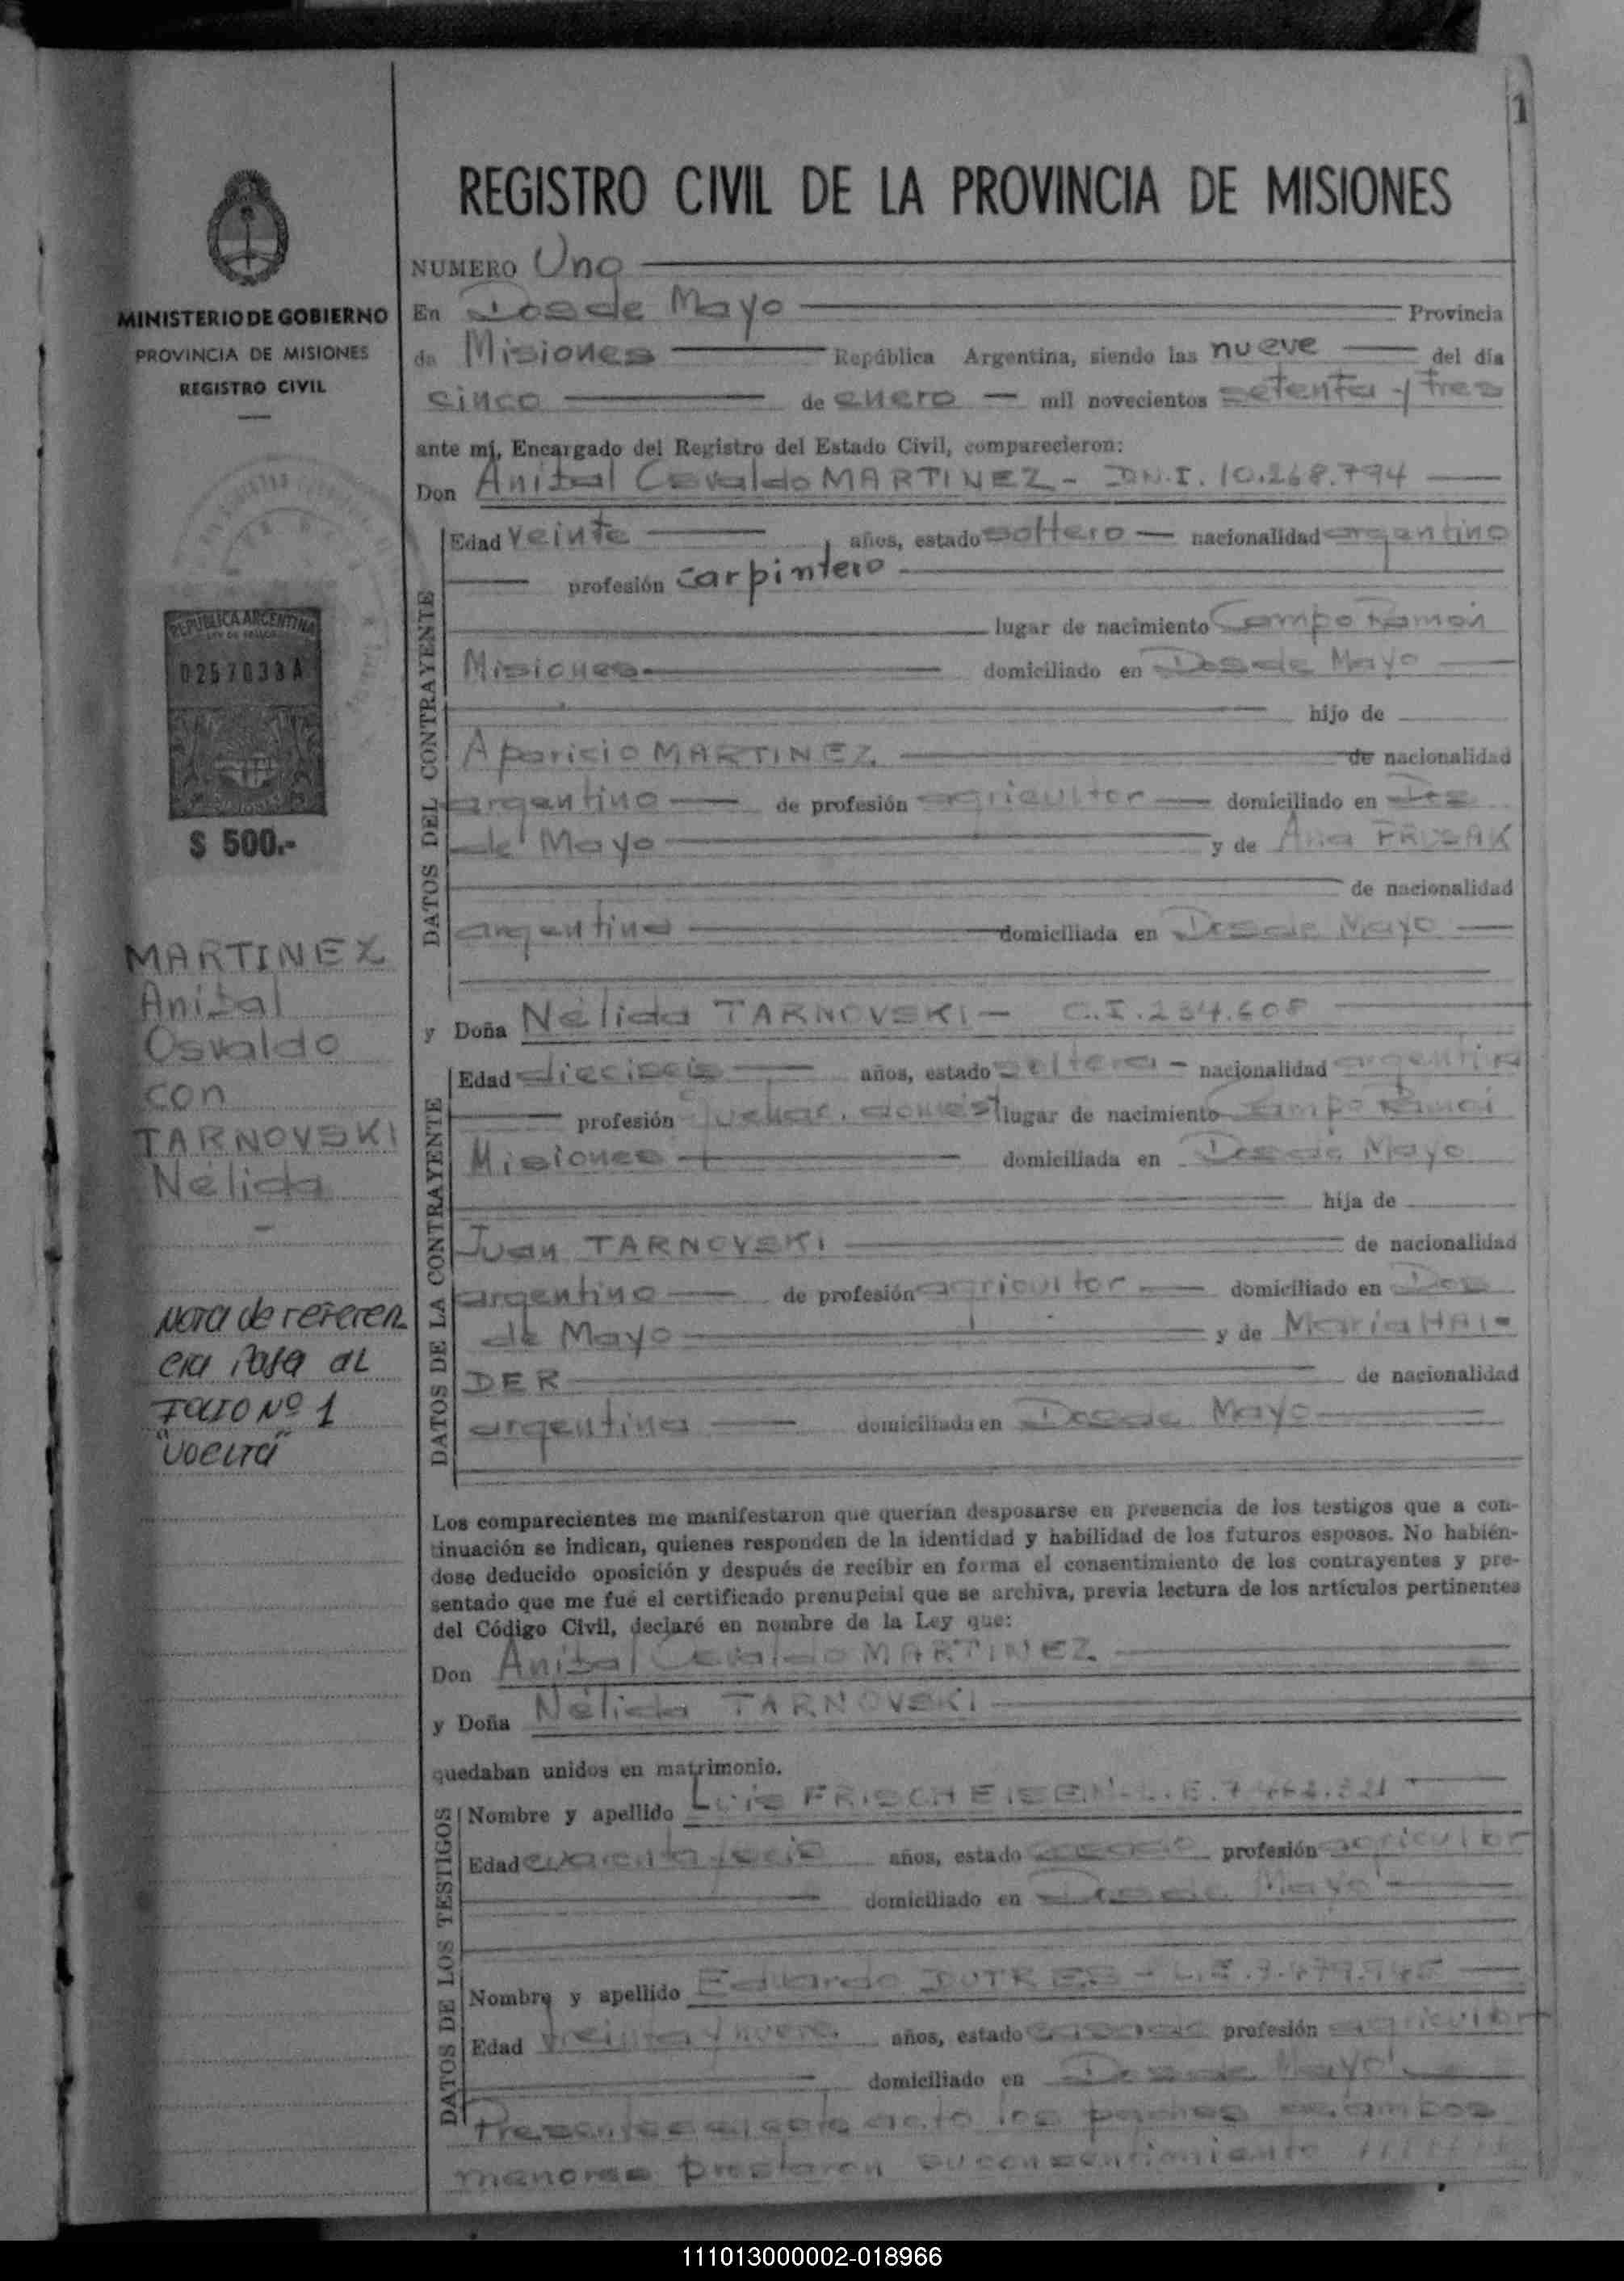 1
REGISTRO CIVIL DE LA PROVINCIA DE MISIONES
MINISTERIO DE GOBIERNO
PROVINCIA DE MISIONES
REGISTRO CIVIL
REPUBLICA ARGENTINA
0257033A
$ 500.-
MARTINEZ
Anibal
Osvaldo
con
TARNOVSKI
Nélida
Nota de referen
cia Pasa al
FOLIO Nº 1
"Vuelta"
NUMERO Uno
En Dos de Mayo Provincia
de Misiones República Argentina, siendo las nueve del día
cinco de enero mil novecientos setenta y tres
ante mi, Encargado del Registro del Estado Civil, comparecieron:
Don Anibal Osvaldo MARTINEZ - D.N.I. 10.268.794
DATOS DEL CONTRAYENTE
Edad veinte años, estado soltero nacionalidad argentino
profesión carpintero
lugar de nacimiento Campo Ramón
Misiones domiciliado en Dos de Mayo
hijo de
Aparicio MARTINEZ de nacionalidad
argentino de profesión agricultor domiciliado en Dos
de Mayo y de Ana
de nacionalidad
argentina domiciliada en Dos de Mayo
y Doña Nélida TARNOVSKI - C.I. 234.608
DATOS DE LA CONTRAYENTE
Edad dieciseis años, estado soltera - nacionalidad argentina
profesión quehac. domést lugar de nacimiento Campo Ramón
Misiones domiciliada en Dos de Mayo
hija de
Juan TARNOVSKI de nacionalidad
argentino de profesión agricultor domiciliado en Dos
de Mayo y de María HAI-
DER de nacionalidad
argentina domiciliada en Dos de Mayo
Los comparecientes me manifestaron que querían desposarse en presencia de los testigos que a con-
tinuación se indican, quienes responden de la identidad y habilidad de los futuros esposos. No habién-
dose deducido oposición y después de recibir en forma el consentimiento de los contrayentes y pre-
sentado que me fué el certificado prenupcial que se archiva, previa lectura de los artículos pertinentes
del Código Civil, declaré en nombre de la Ley que:
Don Anibal Osvaldo MARTINEZ
y Doña Nélida TARNOVSKI
quedaban unidos en matrimonio.
DATOS DE LOS TESTIGOS
Nombre y apellido Luis FRISCHEISEN - L.E. 7.462.321
Edad cuarenta y seis años, estado casado profesión agricultor
domiciliado en Dos de Mayo
Nombre y apellido Eduardo DUTRES - L.E.
Edad años, estado casado profesión agricultor
domiciliado en Dos de Mayo
Presentes en este acto los padres de ambos
menores prestaron su consentimiento
111013000002-018966